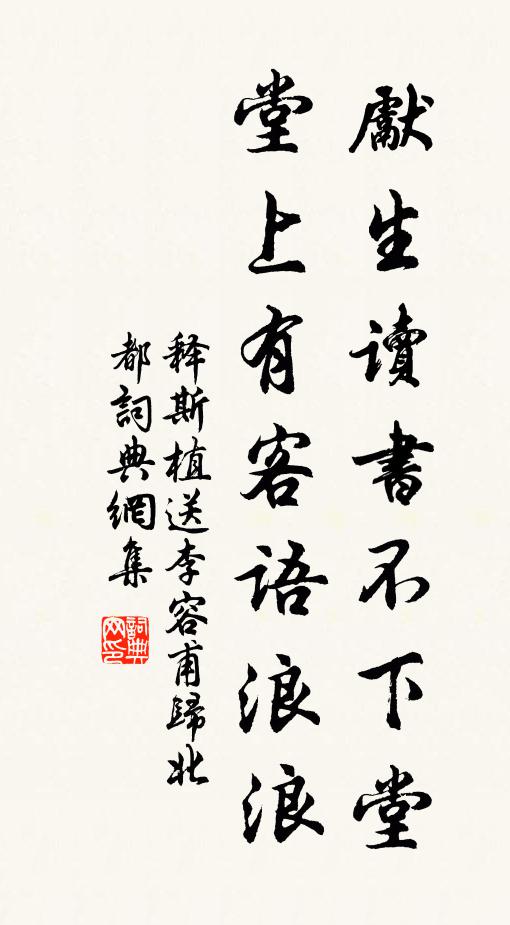 獻生讀書不下堂
堂上有客語浪浪
释斯植送李容甫歸北
都詞典網集
詞典
网印